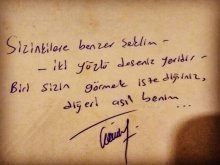 Sizinkilere benzer şeklim -
- iki yüzlü deseniz yeridir -
Biri sizin görmek istediğiniz,
diğeri asıl benim...